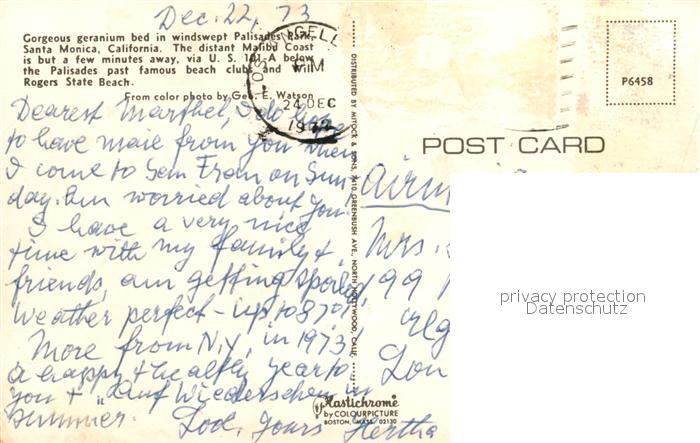 Dec. 22, 73
Gorgeous geranium bed in windswept Palisades Park,
Santa Monica, California. The distant Malibu Coast
is but a few minutes away, via U. S. 101 A below
the Palisades past famous beach clubs and Will
Rogers State Beach.
From color photo by Geo. E. Watson
LOS ANGELES
PM
24 DEC
Dearest I do hope
to have mail from you when
I come to San Fran on Sun
day. Am worried about you.
I have a very nice
time with my family +
friends, am getting spoiled
Weather perfect - up to 87°!
More from N.Y. in 1973!
a happy + healthy year to
you + "Auf Wiedersehen in
summer. Yours Hertha
DISTRIBUTED BY MITOCK & SONS, GREENBUSH AVE., NORTH HOLLYWOOD, CALIF.
Plastichrome
by COLOURPICTURE
BOSTON, MASS. 02130
P6458
POST CARD
Mrs.
99
Lon
privacy protection
Datenschutz